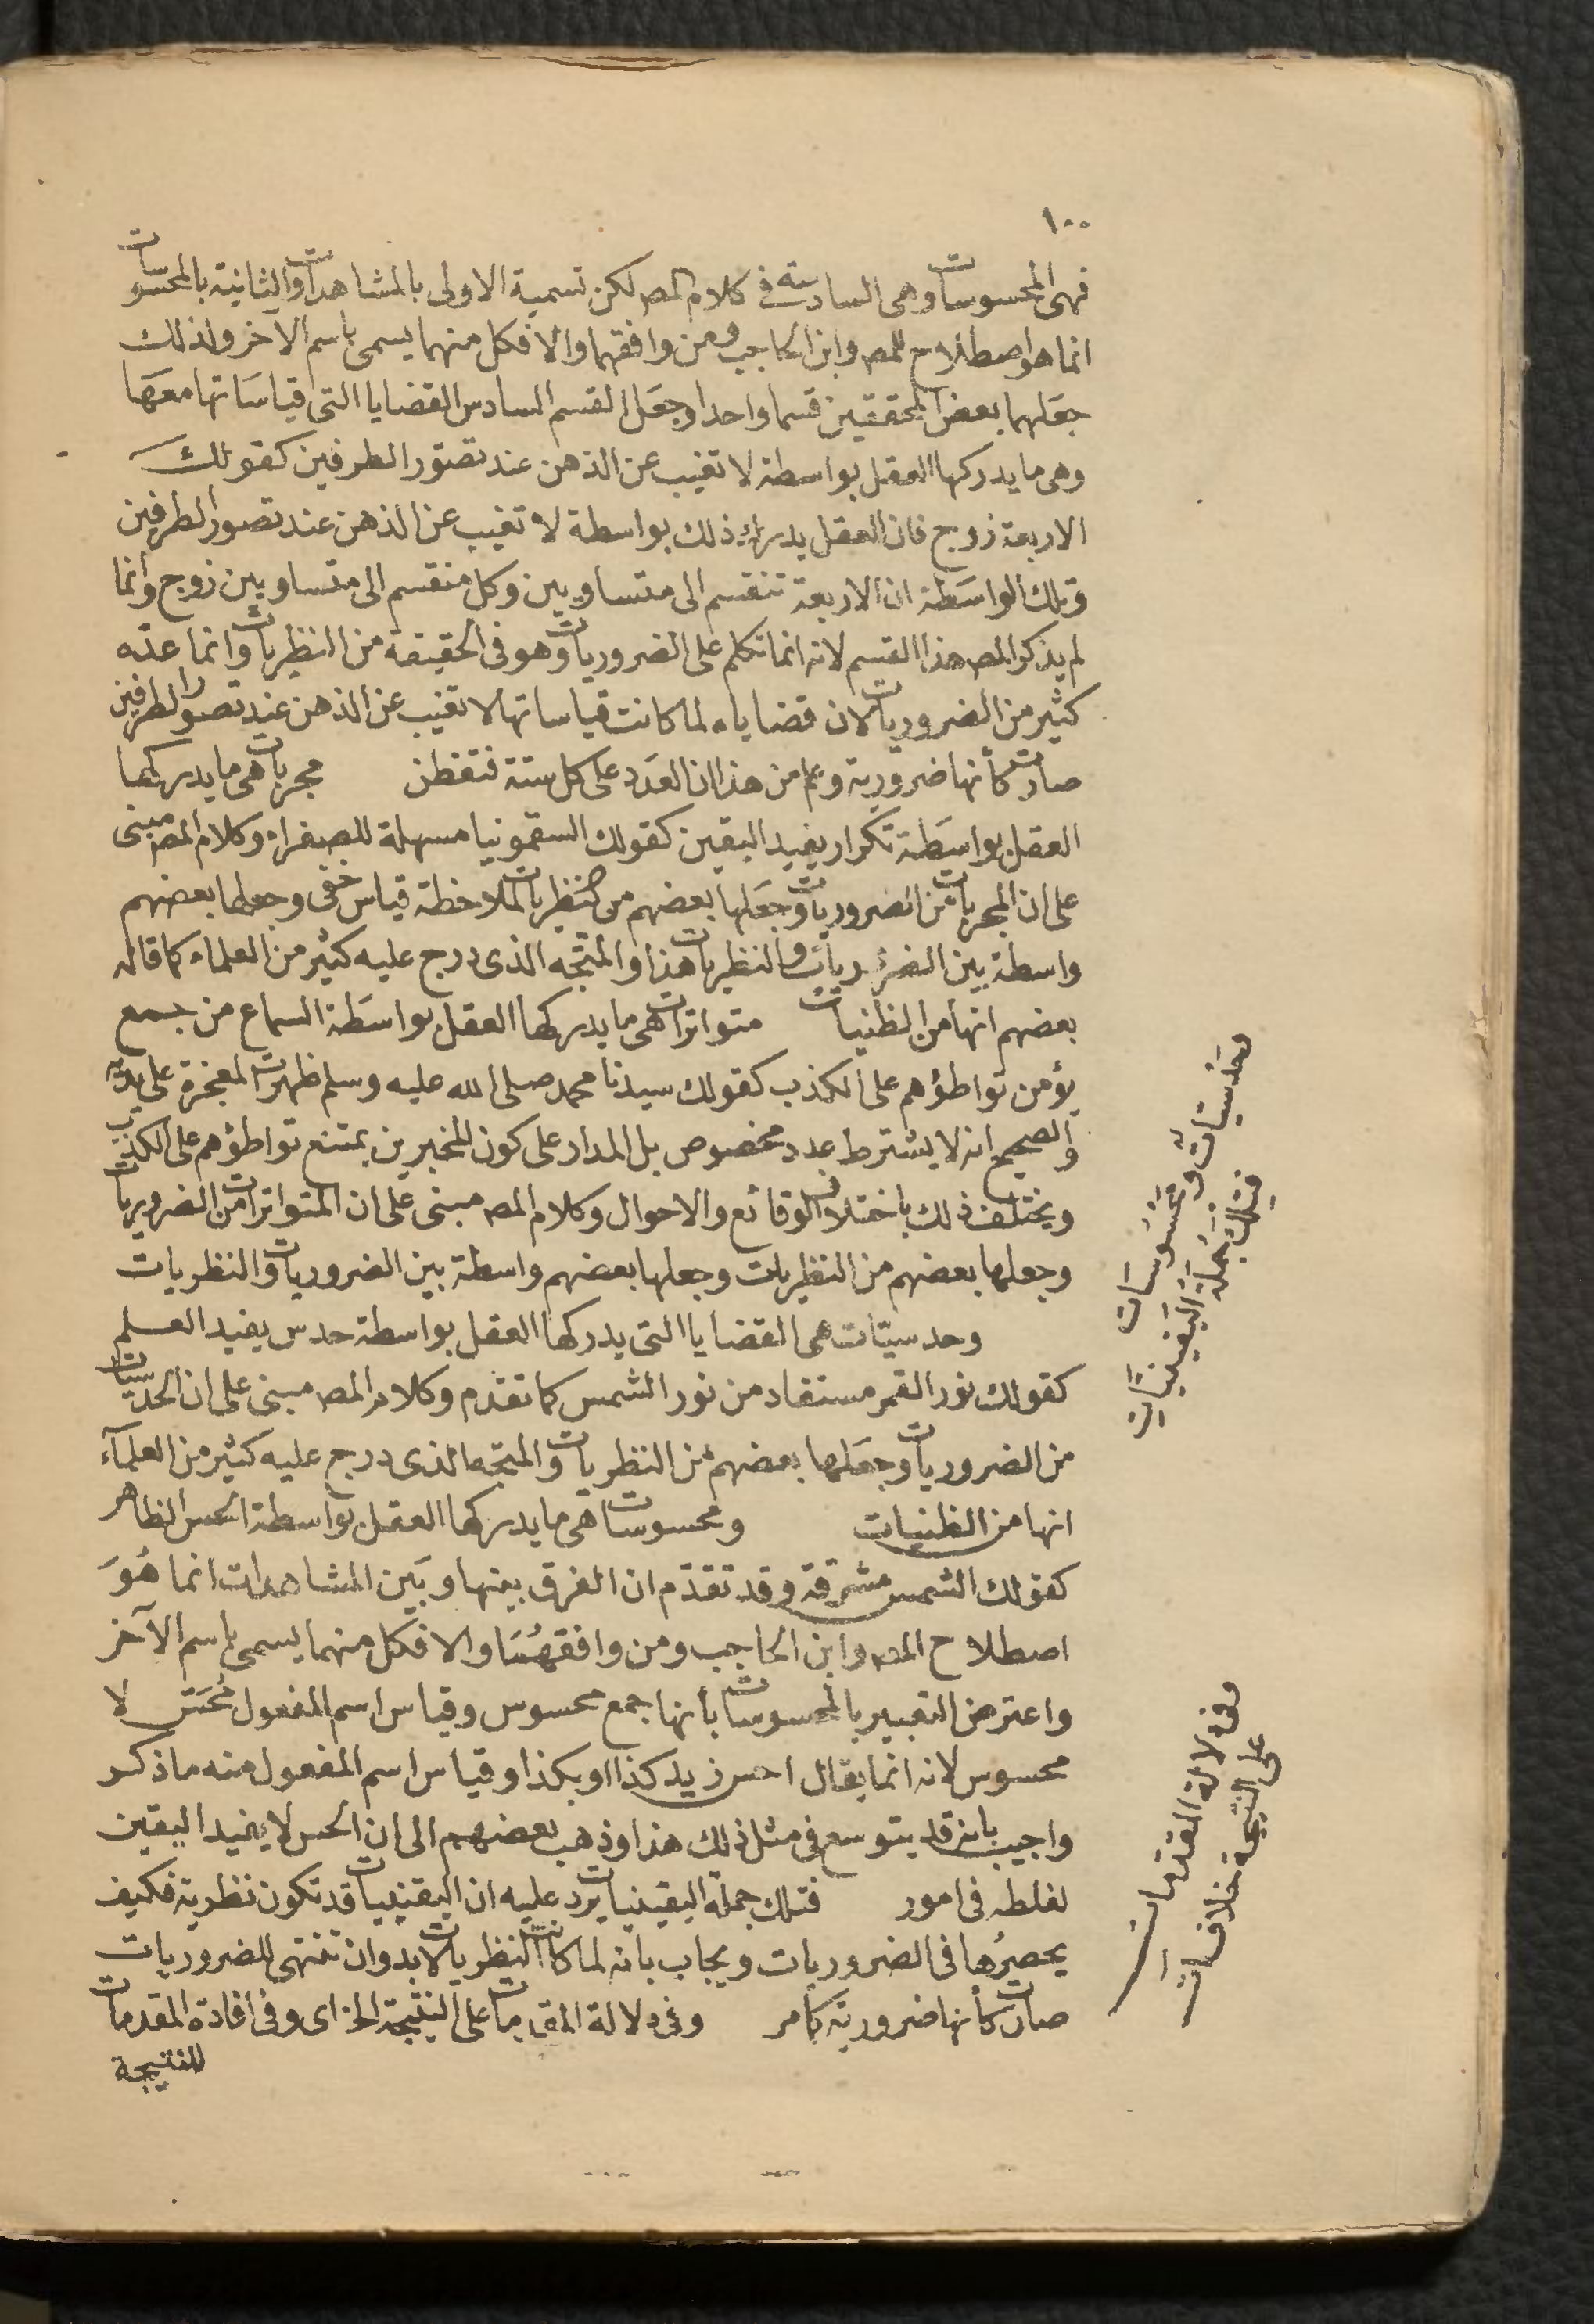 ١٠٠
فهى المحسوسات وهى السادسة فى كلام المص لكن تسمية الاولى بالمشاهدات والثانية بالمحسوسات
انما هو اصطلاح للمص وابن الحاجب ومن وافقهما والا فكل منهما يسمى باسم الآخر ولذلك
جعلهما بعض المحققين قسما واحدا وجعل القسم السادس القضايا التى قياساتها معها
وهى ما يدركها العقل بواسطة لا تغيب عن الذهن عند تصور الطرفين كقولك
الاربعة زوج فان العقل يدرك ذلك بواسطة لا تغيب عن الذهن عند تصور الطرفين
وتلك الواسطة ان الاربعة تنقسم الى متساويين وكل منقسم الى متساويين زوج وانما
لم يذكر المص هذا القسم لانه انما تكلم على الضروريات وهو فى الحقيقة من النظريات وانما عده
كثير من الضروريات لان قضاياه لما كانت قياساتها لا تغيب عن الذهن عند تصور الطرفين
صارت كأنها ضرورية وعلم من هذا ان العدد على كل ستة فتفطن مجربات هى ما يدركها
العقل بواسطة تكرار يفيد اليقين كقولك السقمونيا مسهلة للصفراء وكلام المص مبنى
على ان المجربات من الضروريات وجعلها بعضهم من النظريات لملاحظة قياس خفى وجعلها بعضهم
واسطة بين الضروريات والنظريات هذا والمتجه الذى درج عليه كثير من العلماء كما قاله
بعضهم انها من الظنيات متواترات هى ما يدركها العقل بواسطة السماع من جمع
يؤمن تواطؤهم على الكذب كقولك سيدنا محمد صلى الله عليه وسلم ظهرت المعجزة على يديه
والصحيح انه لا يشترط عدد مخصوص بل المدار على كون المخبرين يمتنع تواطؤهم على الكذب
ويختلف ذلك باختلاف الوقائع والاحوال وكلام المص مبنى على ان المتواترات من الضروريات
وجعلها بعضهم من النظريات وجعلها بعضهم واسطة بين الضروريات والنظريات
وحدسيات هى القضايا التى يدركها العقل بواسطة حدس يفيد العلم
كقولك نور القمر مستفاد من نور الشمس كما تقدم وكلام المص مبنى على ان الحدسيات
من الضروريات وجعلها بعضهم من النظريات والمتجه الذى درج عليه كثير من العلمآء
انها من الظنيات ومحسوسات هى ما يدركها العقل بواسطة الحس الظاهر
كقولك الشمس مشرقة وقد تقدم ان الفرق بينها وبين المشاهدات انما هو
اصطلاح المص وابن الحاجب ومن وافقهما والا فكل منهما يسمى باسم الآخر
واعترض التعبير بالمحسوسات بأنها جمع محسوس وقياس اسم المفعول مُحَسّ لا
محسوس لانه انما يقال احس زيد كذا او بكذا وقياس اسم المفعول منه ما ذكر
واجيب بانه قد يتوسع فى مثل ذلك هذا وذهب بعضهم الى ان الحس لا يفيد اليقين
لغلطه فى امور فتلك جملة اليقينيات يرد عليه ان اليقينيات قد تكون نظرية فكيف
يحصرها فى الضروريات ويجاب بانه لما كانت النظريات لا بد وان تنتهى للضروريات
صارت كأنها ضرورية كما مر وفى دلالة المقدمات على النتيجة الخ اى وفى افادة المقدمات
للنتيجة
وحدسيات ومحسوسات
فتلك جملة اليقينيات
وفى دلالة المقدمات
على النتيجة خلاف آت